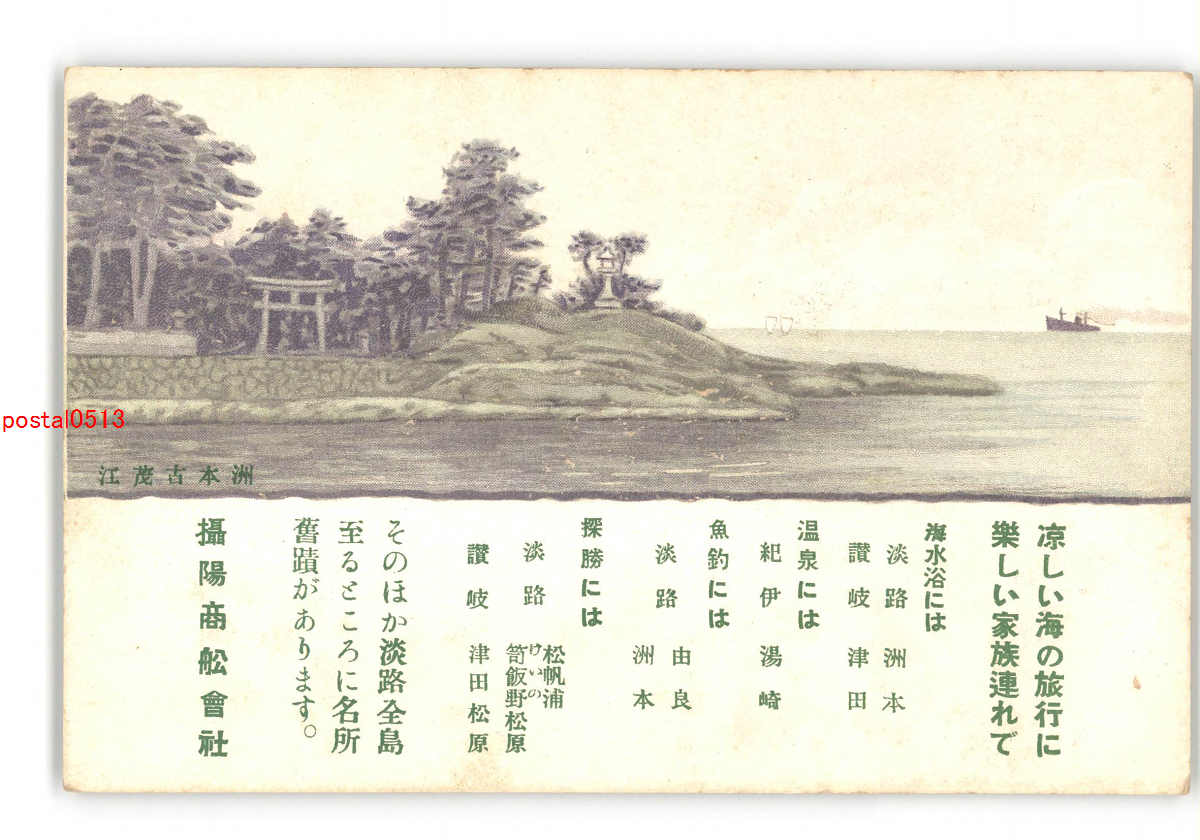 涼しい海の旅行に
樂しい家族連れで
海水浴には
淡路 洲本
讃岐 津田
温泉には
紀伊 湯崎
魚釣には
淡路 由良
洲本
探勝には
淡路 松帆浦
笥飯野松原
けいの
讃岐 津田松原
そのほか淡路全島
至るところに名所
舊蹟があります。
攝陽商舩會社
江茂古本洲
postal0513